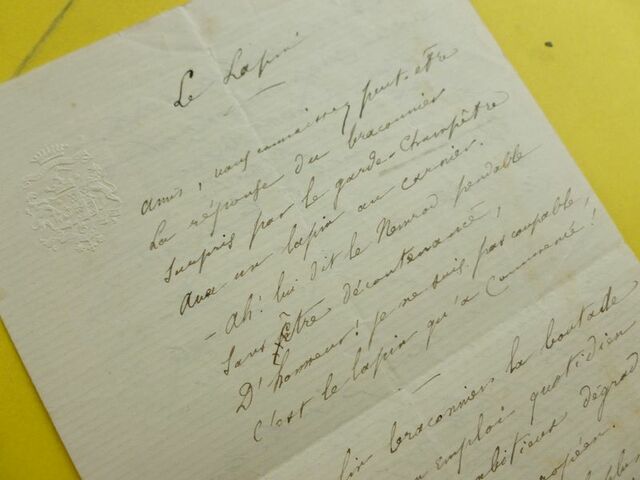 Le Lapin
Amis, vous connaissez peut-être
La réponse du braconnier
Surpris par le garde-champêtre
Avec un lapin au carnier.
- Ah! lui dit le Nemrod pendable
Sans être décontenancé,
D'honneur! je ne suis pas coupable,
C'est le lapin qu'a commencé!
braconniers la boutade
emploi quotidien
dégrad
plus